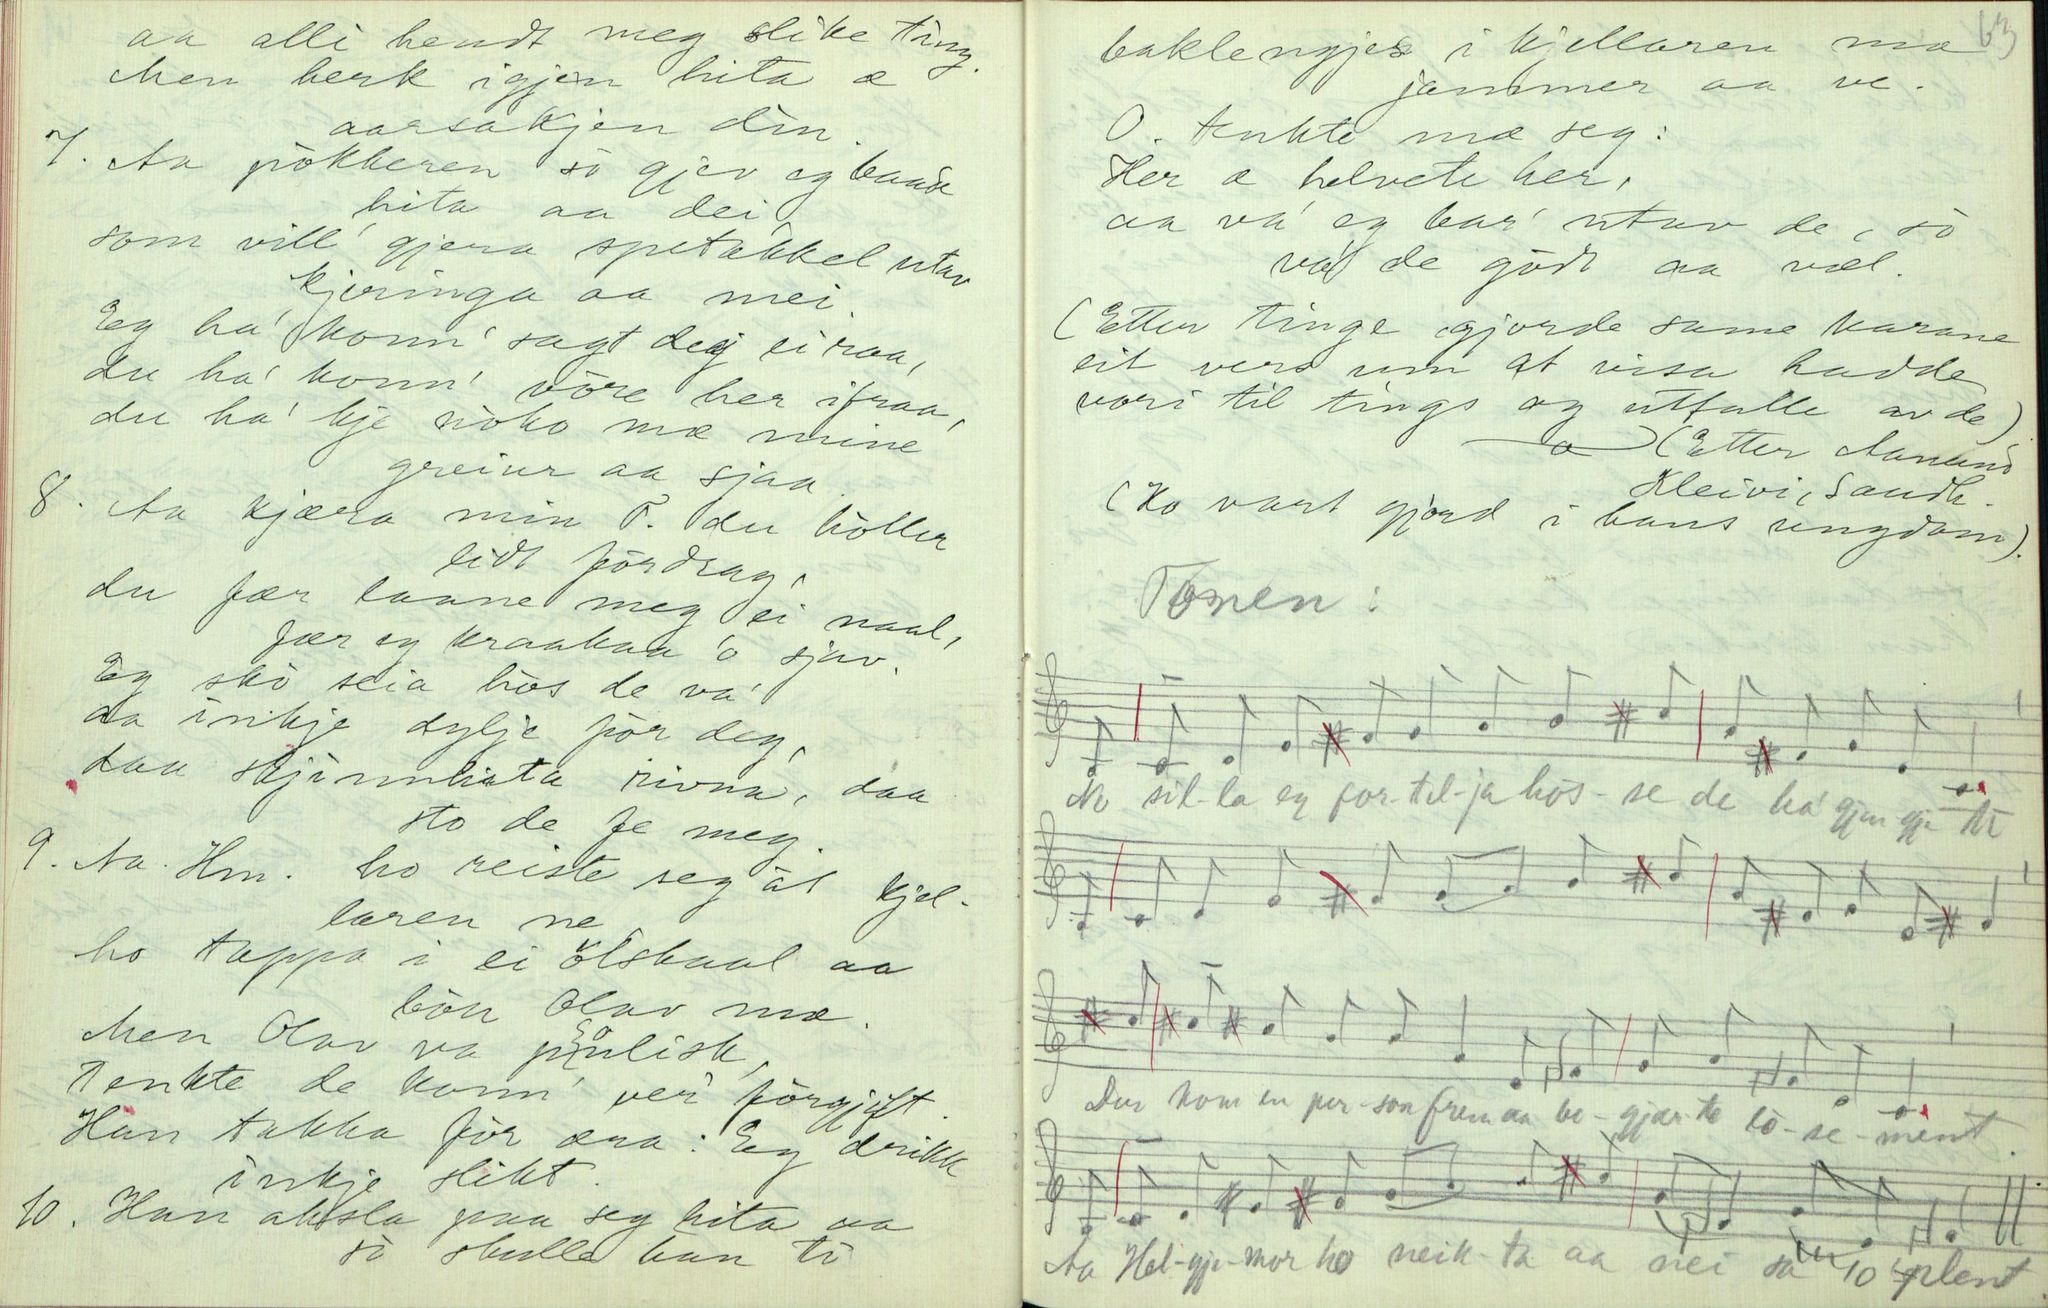 aa alli hendt meg slike ting.
Men herk igjen hita æ
aarsakjen din.
7. Aa pokkeren so gjev eg baade
hita aa dei,
som vill' gjera spetakkel utav
kjeringa aa mei.
Eg ha' konn' sagt deg ei raa,
du ha' konn' vore her ifraa,
du ha' kje noko mæ mine
greiur aa sjaa.
8. Aa kjæra min T. du holler
lidt fordrag,
du fær laane meg ei naal,
fær eg kraakaa o sjav.
Eg sko seia hos de va'
aa inkje dylje for deg,
daa skjinnhata rivna, daa
sto de fe meg.
9. Aa Hm. ho reiste seg åt kjel-
laren ne,
ho tappa i ei ölskaal aa
bön Olav mæ.
Men Olav va polisk,
Tenkte de konn' ver' forgjift.
Han takka for æra: Eg drikk
inkje slikt.
10. Han aksla paa seg hita aa
so skulle han te
63
baklengjes i kjellaren mæ
jammer aa ve.
O. tenkte mæ seg:
Her æ helvete her,
aa va' eg bar' utav de, so
va' de godt aa væl.
(Etter tinge gjorde same karane
eit vers um at visa hadde
vori til tings og utfalle av de)
(Etter Aanund
Kleivi, Saudh.
(Ho vart gjord i hans ungdom).
Tonen:
No sil-la eg for-tel-ja hos-se de ha' gjen gje te
Der kom en per-son frem aa be-gjær-te lo-se-ment
Aa Hel-gje-mor ho neik-ta aa nei sa ho plent